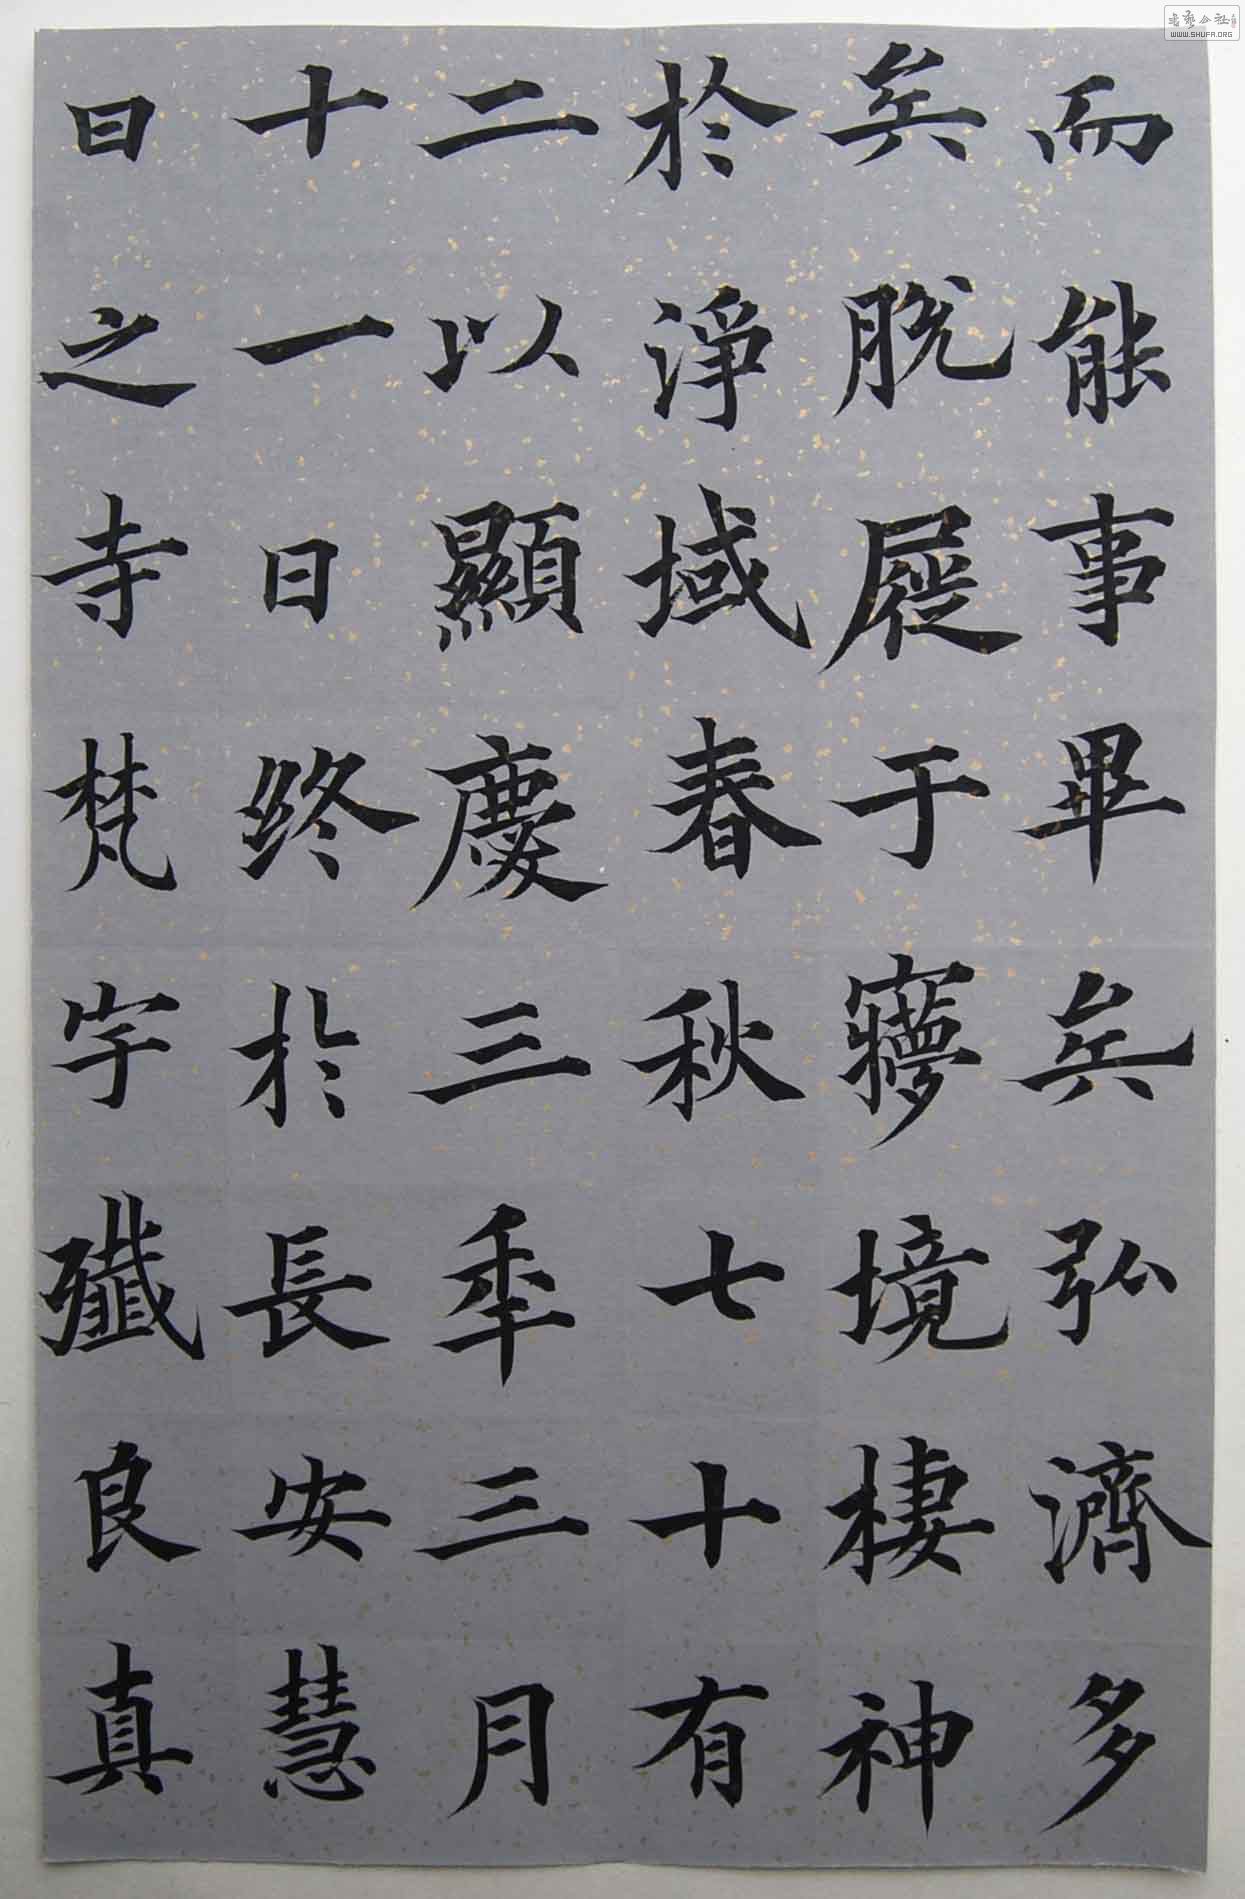 而能事畢矣弘濟多
矣脫屣于寢境棲神
於淨域春秋七十有
二以顯慶三年三月
十一日終於長安慧
日之寺梵宇殲良真
WWW.SHUFA.ORG